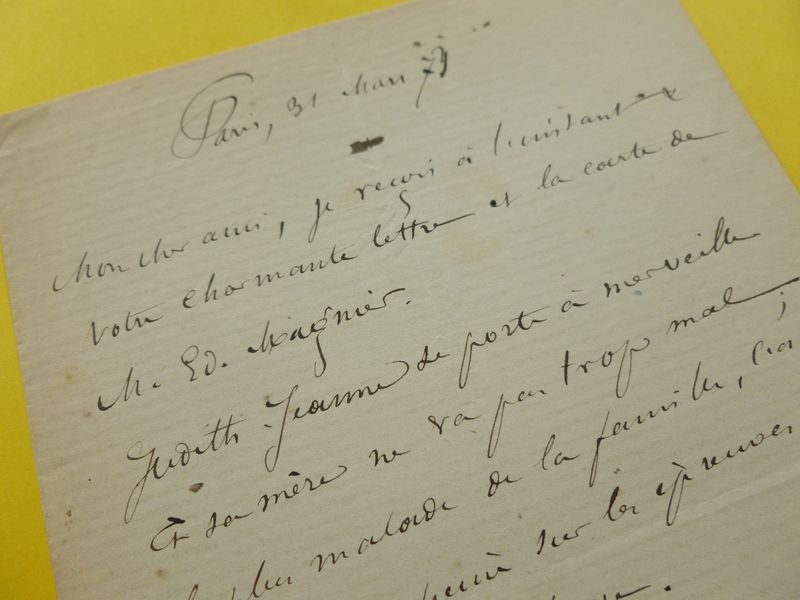 Paris, 31 Mars 79
Mon cher ami, je reçois à l'instant
votre charmante lettre et la carte de
M. Ed. Magnier.
Judith-Jeanne se porte à merveille
Et sa mère ne va pas trop mal ;
plus malade de la famille,
sur les épreuves